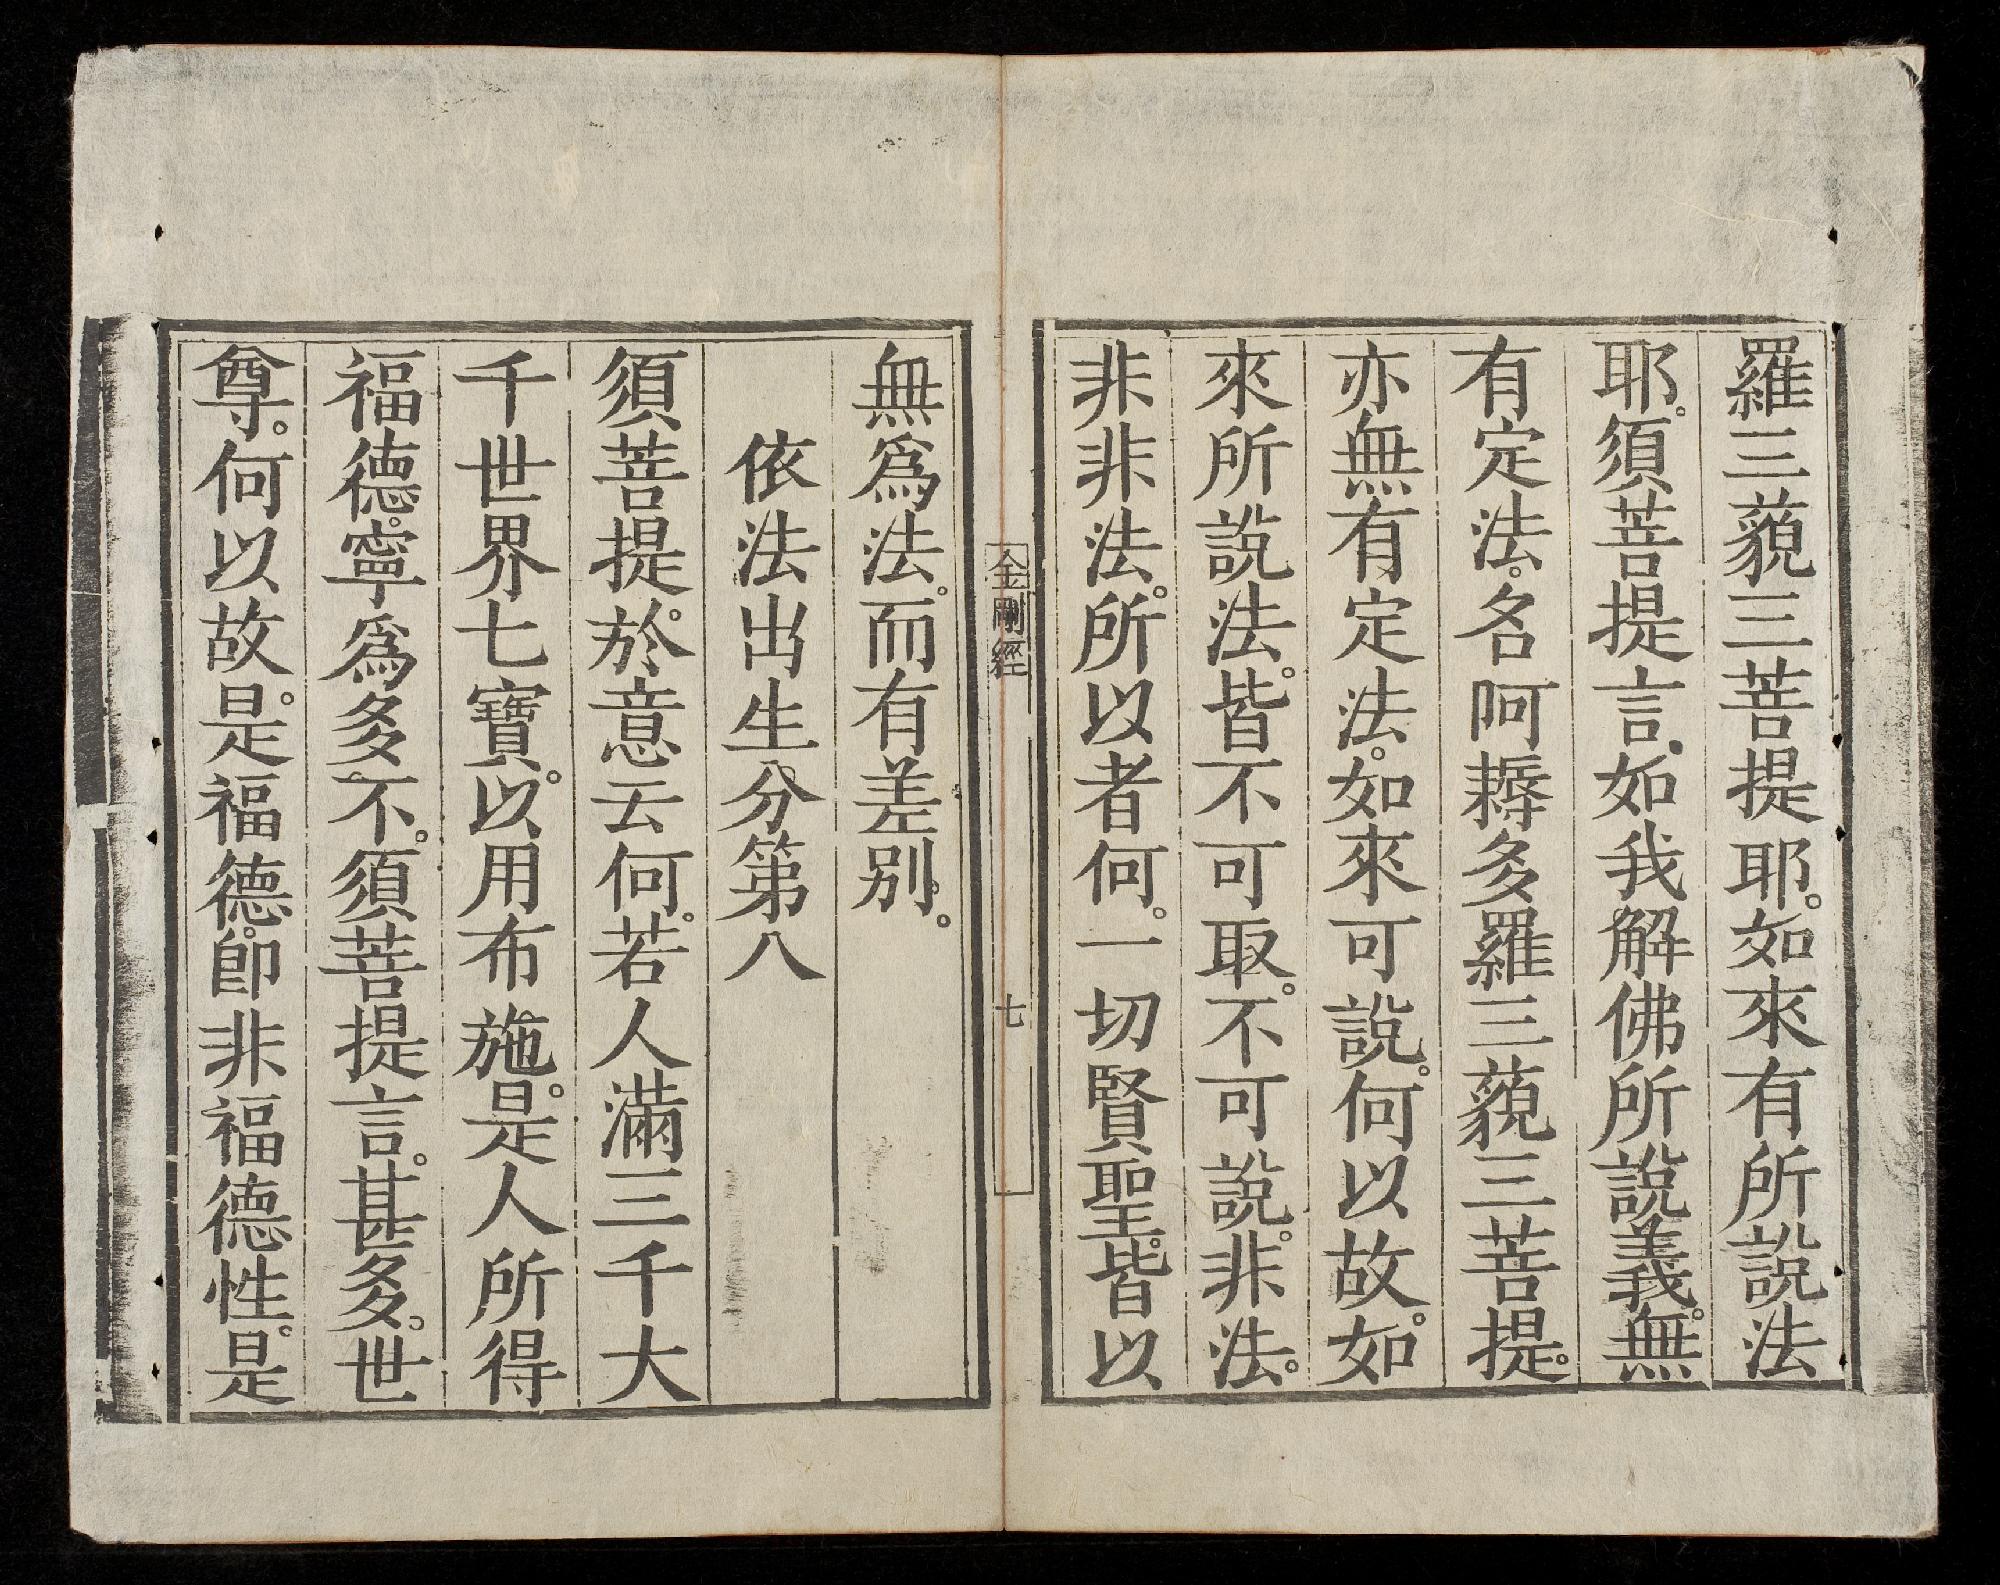 羅三藐三菩提耶。如來有所說法
耶。須菩提言。如我解佛所說義。無
有定法。名阿耨多羅三藐三菩提。
亦無有定法。如來可說。何以故。如
來所說法。皆不可取。不可說。非法。
非非法。所以者何。一切賢聖。皆以
金剛經
七
無爲法。而有差別。
依法出生分第八
須菩提。於意云何。若人滿三千大
千世界七寶。以用布施。是人所得
福德。寧爲多不。須菩提言。甚多。世
尊。何以故。是福德。卽非福德性。是